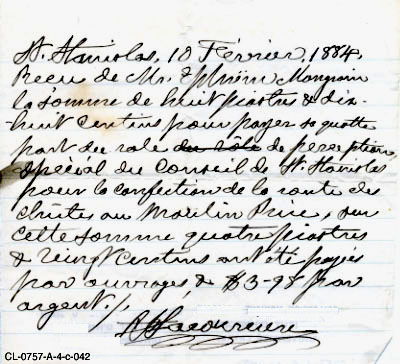 St. Stanislas, 10 Février, 1884,
Recu de Mr. Ephrem Mongrain
la somme de huit piastres & dix-
-huit Centins pour payer sa quotte
part du role du role de perception,
spécial du Conseil de St. Stanislas
pour la confection de la route des
chûtes au Moulin Price, sur
cette somme quatre piastres
& vingt centins ont été payés
par ouvrages, & $3-98 par
argent./.
Lacoursiere
CL-0757-A-4-c-042